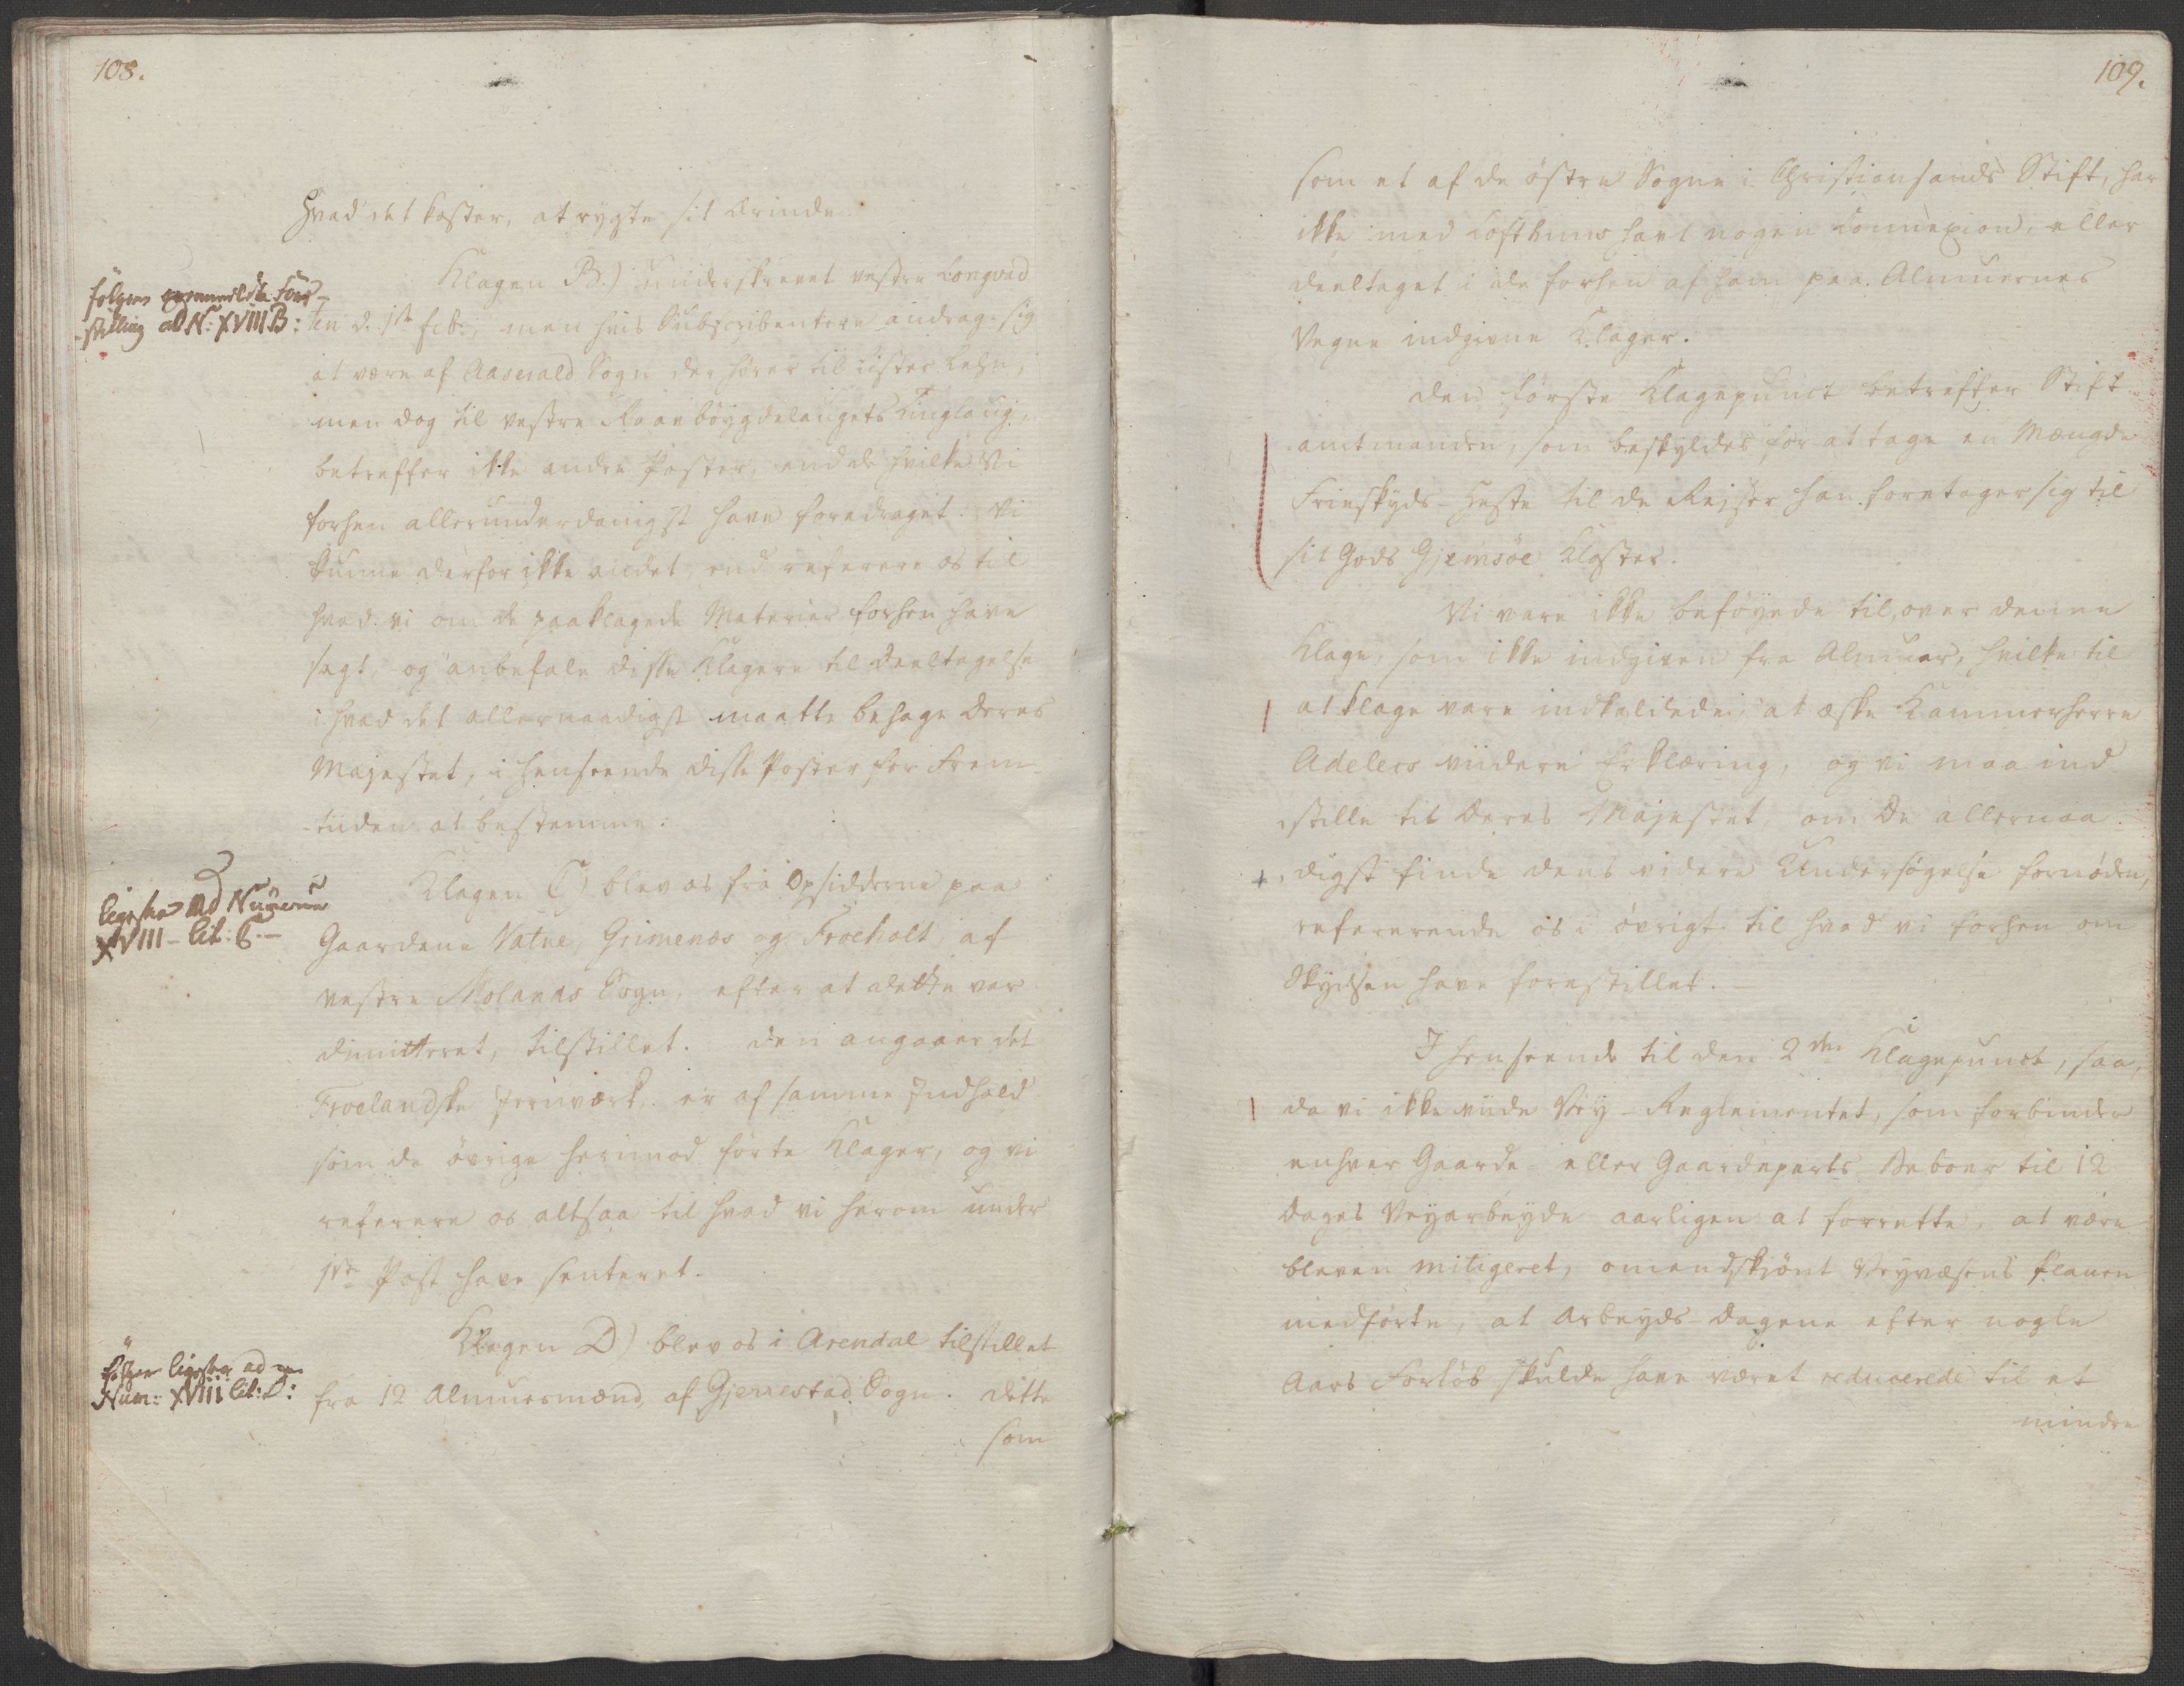 108.
Hvad det koster, at rygte sit Ærinde.
Klagen B.) underskrevet vestre Longvad
følger
stilling ad N: XVIII B:
den d. 1ste feb:, men hvis Subscribentere andrage sig
at være af Aaserald Sogn der hører til Lister Lehn,
men dog til vestre Raaebøygdelaugets Tinglaug,
betreffer ikke andre Poster, end de hvilke Vi
forhen allerunderdanigst have foredraget. Vi
kunne derfor ikke andet, end referere os til
hvad vi om de paaklagede Materier forhen have
sagt, og anbefale disse Klagere til Deeltagelse
i hvad det allernaadigst maatte behage Deres
Majestet, i henseende disse Poster for Frem-
tiiden at bestemme.
Klagen C) blev os fra Opsidderne paa
ligesaa ad Numerum
XVIII - lit: C. -
Gaardene Natue, Grimenæs og Froeholt, af
vestre Molands Sogn, efter at dette var
dimitteret, tilstillet. Den angaaer det
Froelandske Jernværk, er af samme Indhold
som de øvrige herimod førte Klager, og vi
referere os altsaa til hvad vi herom under
1ste Post have senteret.
Klagen D) blev os i Arendal tilstillet
følger ligesaa ad
Num: XVIII lit: D:
fra 12 Almuesmænd, af Gjerrestad Sogn. Dette
som
109.
som et af de østre Sogne i Christiansands Stift, har
ikke med Lofthuus havt nogen Connexion, eller
deeltaget i de forhen af ham paa Almuernes
Vegne indgivne Klager.
Den første Klagepunct betreffer Stift-
amtmanden, som beskyldes for at tage en Mængde
Frieskyds-Heste til de Rejser han foretager sig til
sit Gods Gjemsöe Kloster.
Vi vare ikke beføyede til, over denne
Klage, som ikke indgiven fra Almuer, hvilke til
at klage vare indkaldede, at æske Kammerherre
Adelers viidere Erklæring, og vi maa ind-
stille til Deres Majestet, om De allernaa-
digst finde dens videre Undersøgelse fornøden,
refererende os i øvrigt til hvad vi forhen om
Skydsen have forestillet.
I henseende til den 2den Klagepunct, saa,
da vi ikke viide Vey-Reglementet, som forbinder
enhver Gaards- eller Gaardeparts Beboer til 12
dages Veyarbeyde aarligen at forrette, at være
bleven mitigeret, omendskjønt Veyvæsens Planen
medførte, at Arbeyds-Dagene efter nogle
Aars Forløb skulde have været reducerede til et
mindre